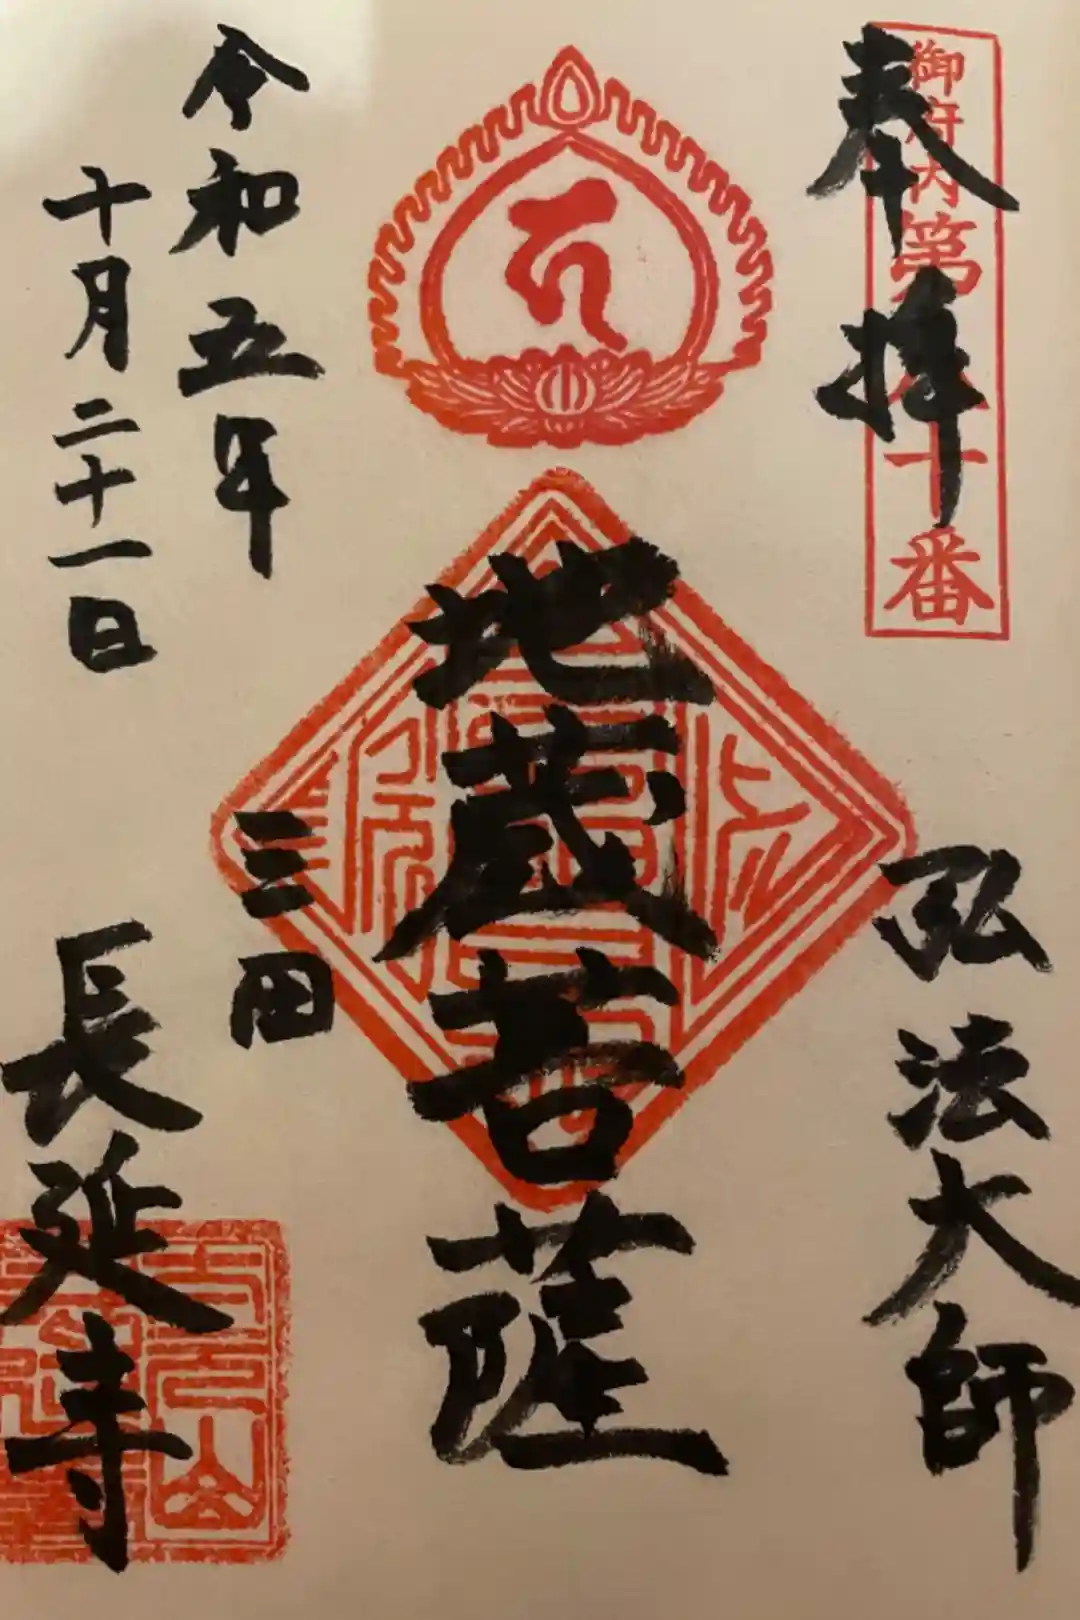 御府内第八十番
奉拝
弘法大師
地蔵菩薩
令和五年
十月二十一日
三田
長延寺